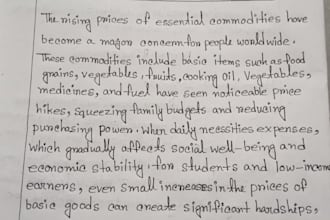 The rising prices of essential commodities have
become a major concern for people worldwide.
These commodities include basic items such as food
grains, vegetables, fruits, cooking oil, Vegetables,
medicines, and fuel have seen noticeable price
hikes, squeezing family budgets and reducing
purchasing power. When daily necessities expenses,
which gradually affects social well-being and
economic stability. for students and low-income
earners, even small increases in the prices of
basic goods can create significant hardships,